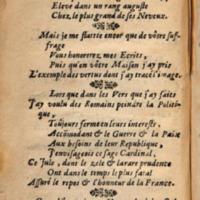 Eleve dans un rang auguste
Chez le plus grand de ses Neveux.
Mais je me flatte encor que de vôtre suf-
frage
Vous honorerez, mes Ecrits,
Puis qu'en vôtre Maison j'ay pris
L'exemple des vertus dont j'ay tracé l'image.
Lors que dans les Vers que j'ay faits
J'ay voulu des Romains peindre la Politi-
que,
Toûjours ferme en leurs interests,
Accomodant & la Guerre & la Paix
Aux besoins de leur Republique,
J'envisageois ce sage Cardinal,
Ce Jule, dont le zele & l'ardeur prudente
Ont dans le temps le plus fatal
Assuré le repos & l'honneur de la France.